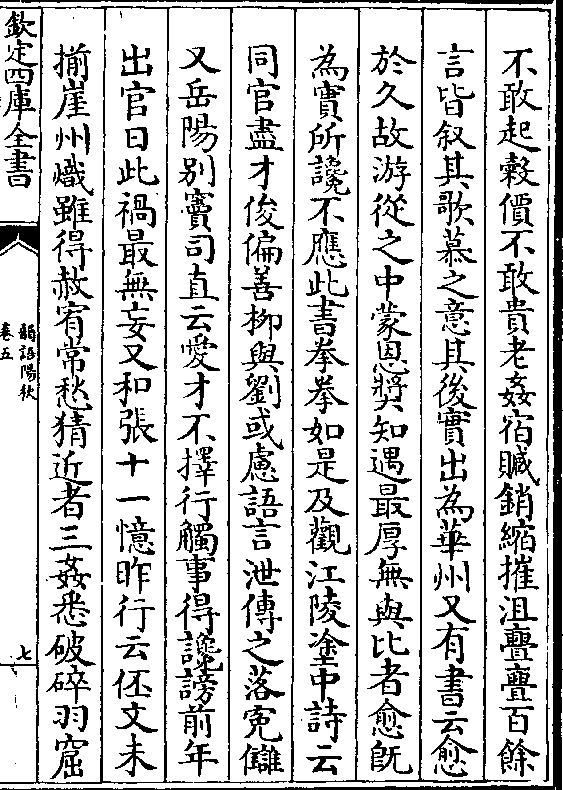 不敢起榖價不敢貴老姦宿贓銷縮摧沮亹亹百餘
言皆叙其歌慕之意其後實出為華州又有書云愈
於久故游從之中蒙恩奬知遇最厚無與比者愈旣
為實所讒不應此書拳拳如是及觀江陵塗中詩云
同官盡才俊偏善柳與劉或慮語言泄傳之落寃讎
又岳陽别竇司直云愛才不擇行觸事得讒謗前年
出官日此禍最無妄又和張十一憶昨行云伾文未
揃崖州熾雖得赦宥常愁猜近者三姦悉破碎羽窟
欽定四庫全書
韻語陽秋
卷五
七